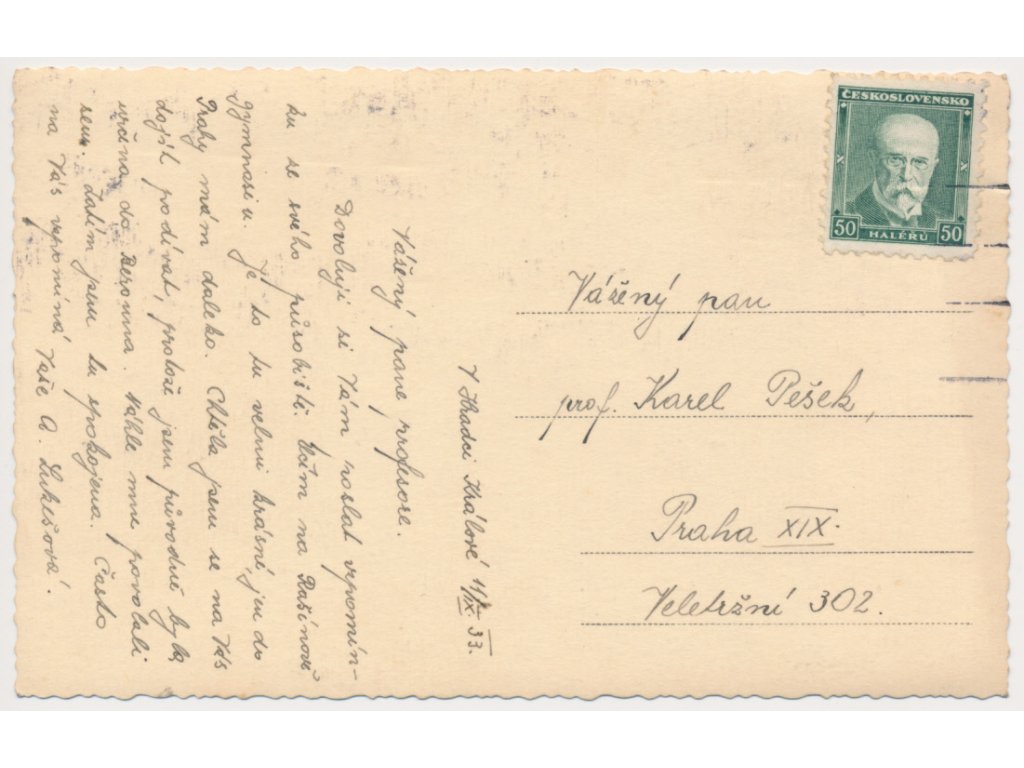 V Hradci Králové 11/IX. 33.
Vážený pane profesore.
Dovoluji si Vám poslat vzpomín-
ku ze svého působiště. Učím na Rašínově
gymnasiu. Je to tu velmi krásné, jen do
Prahy mám daleko. Chtěla jsem se na Vás
dojít podívat, protože jsem původně byla
určena do Berouna. Náhle mne povolali
sem. Zatím jsem tu spokojena. Často
na Vás vzpomíná Vaše A. Lukešová.
ČESKOSLOVENSKO
50 HALÉŘŮ 50
Vážený pan
prof. Karel Pešek,
Praha XIX.
Veletržní 302.